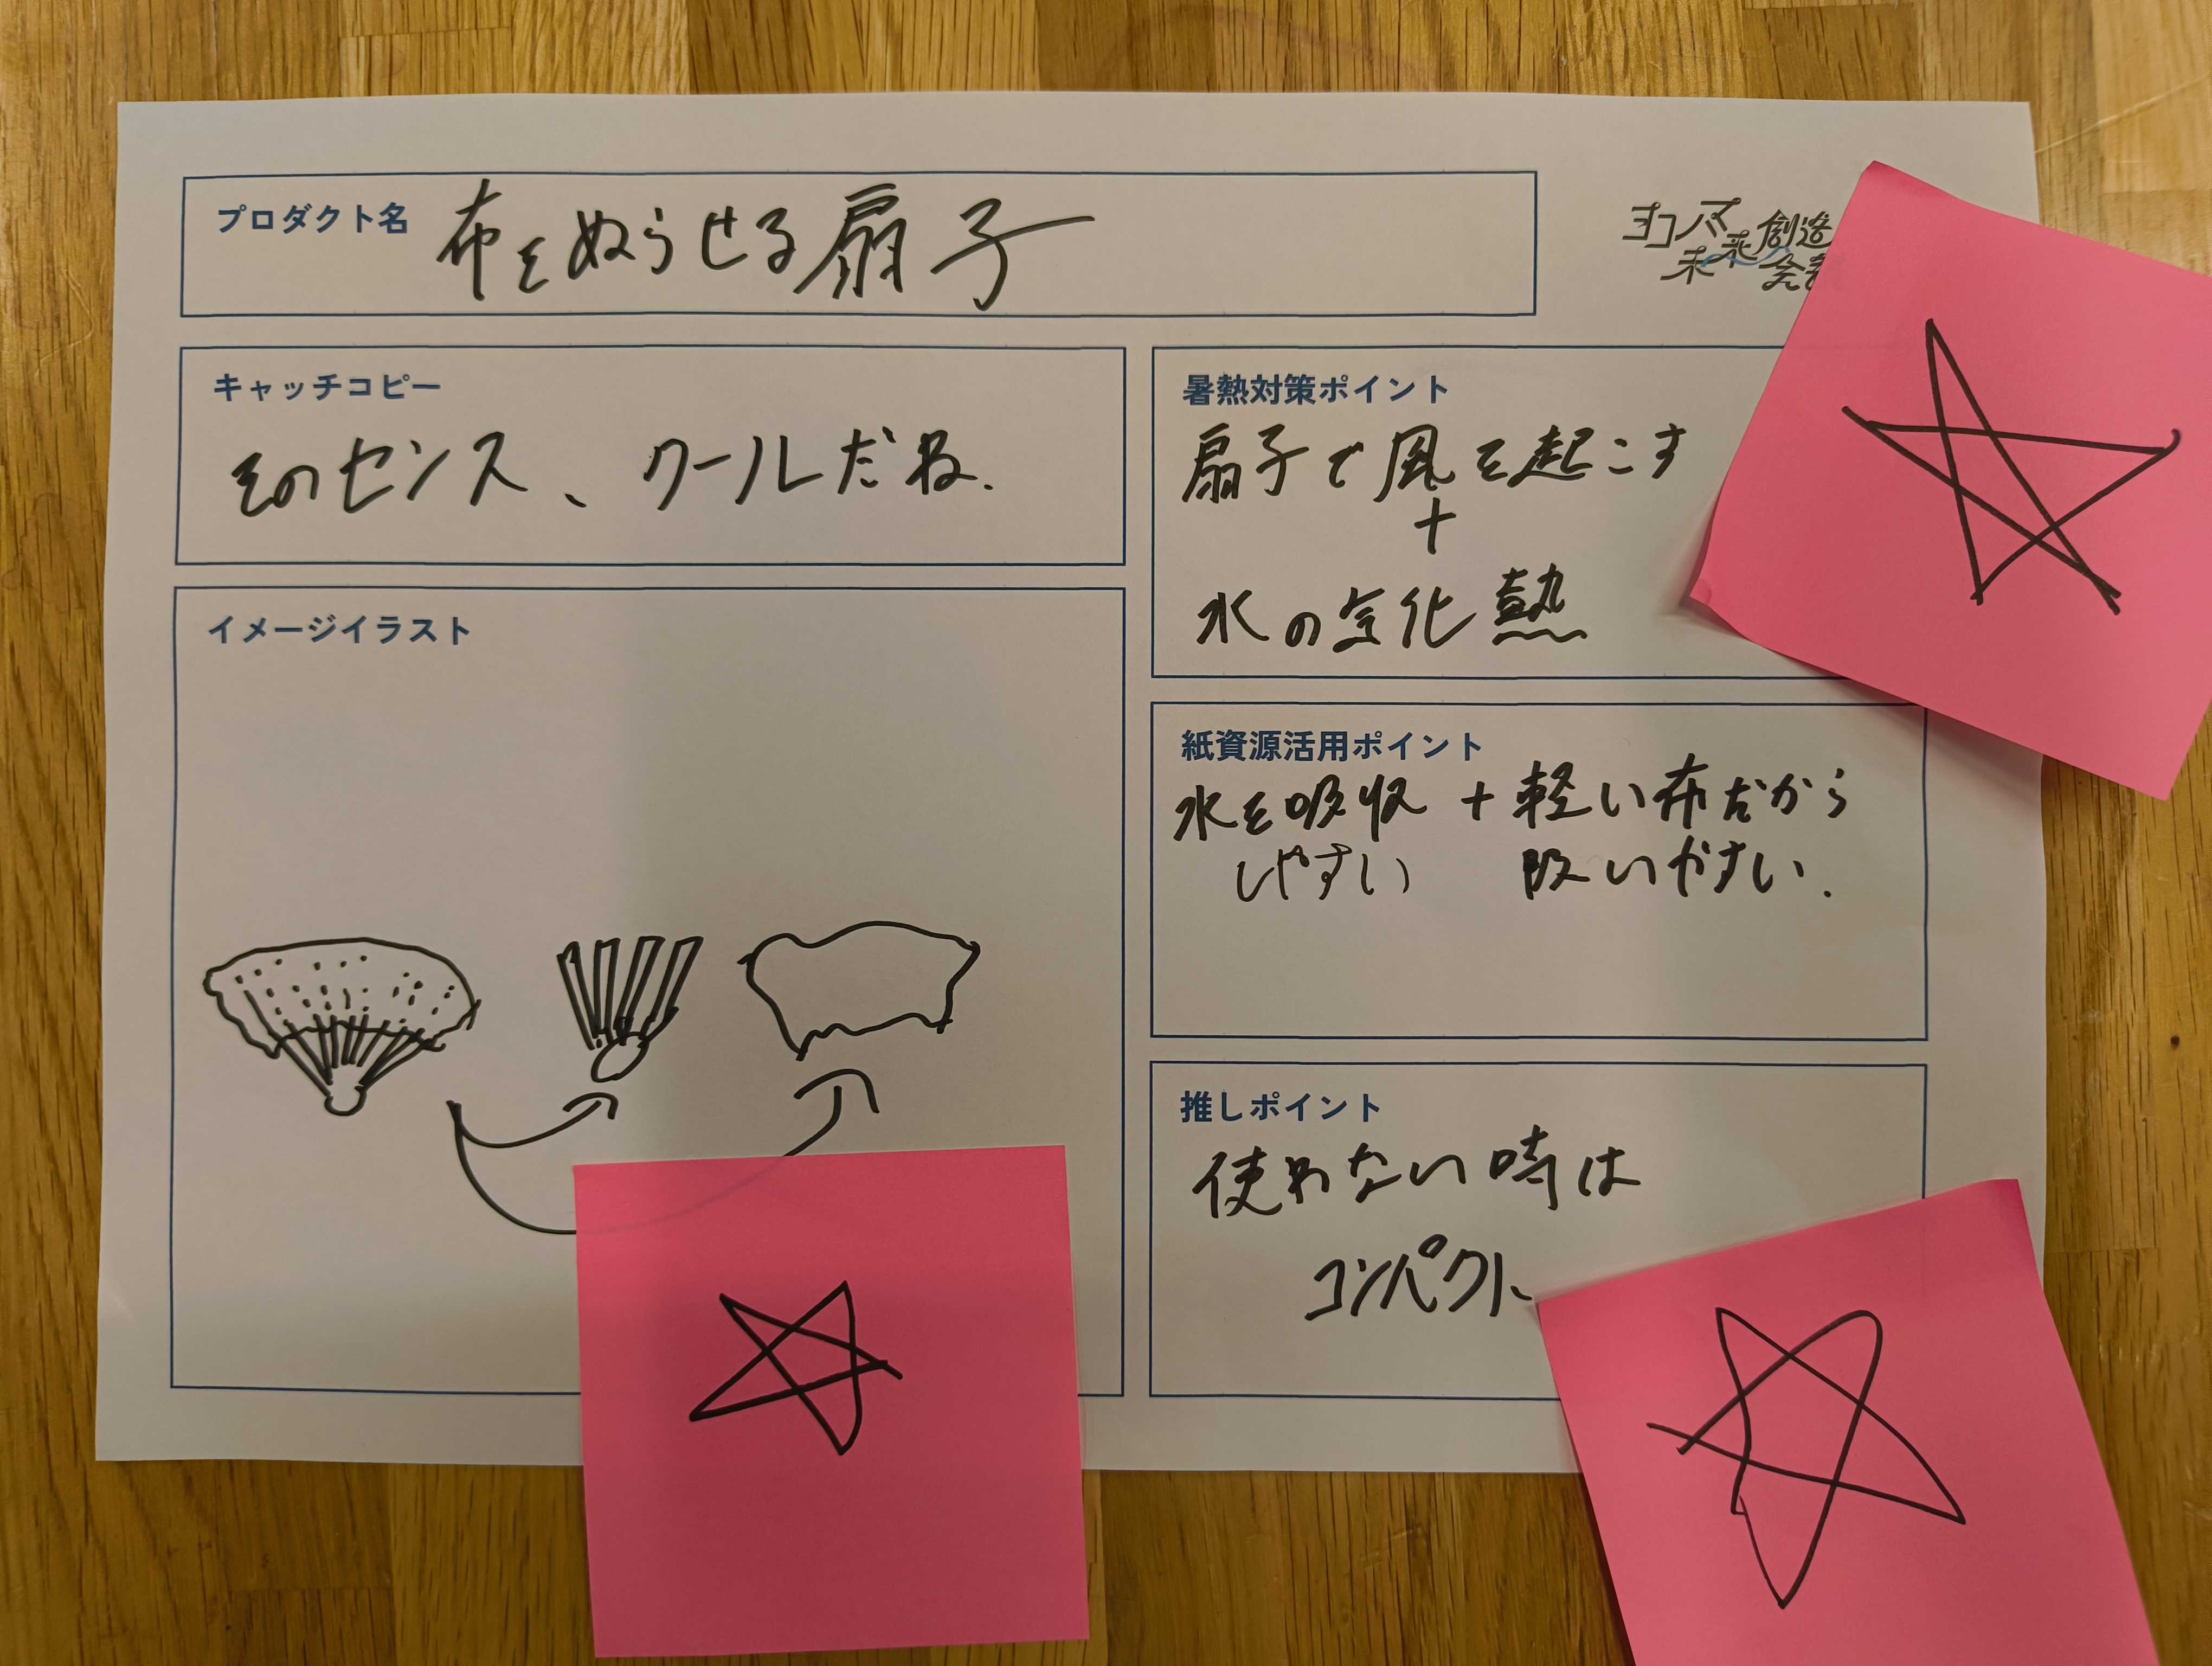 プロダクト名 布をぬらせる扇子
ヨコハマ
未来創造
キャッチコピー
そのセンス、クールだね.
イメージイラスト
暑熱対策ポイント
扇子で風を起こす
+
水の気化熱
紙資源活用ポイント
水を吸収 + 軽い布だから
しやすい 扱いやすい.
推しポイント
使わない時は
コンパクト